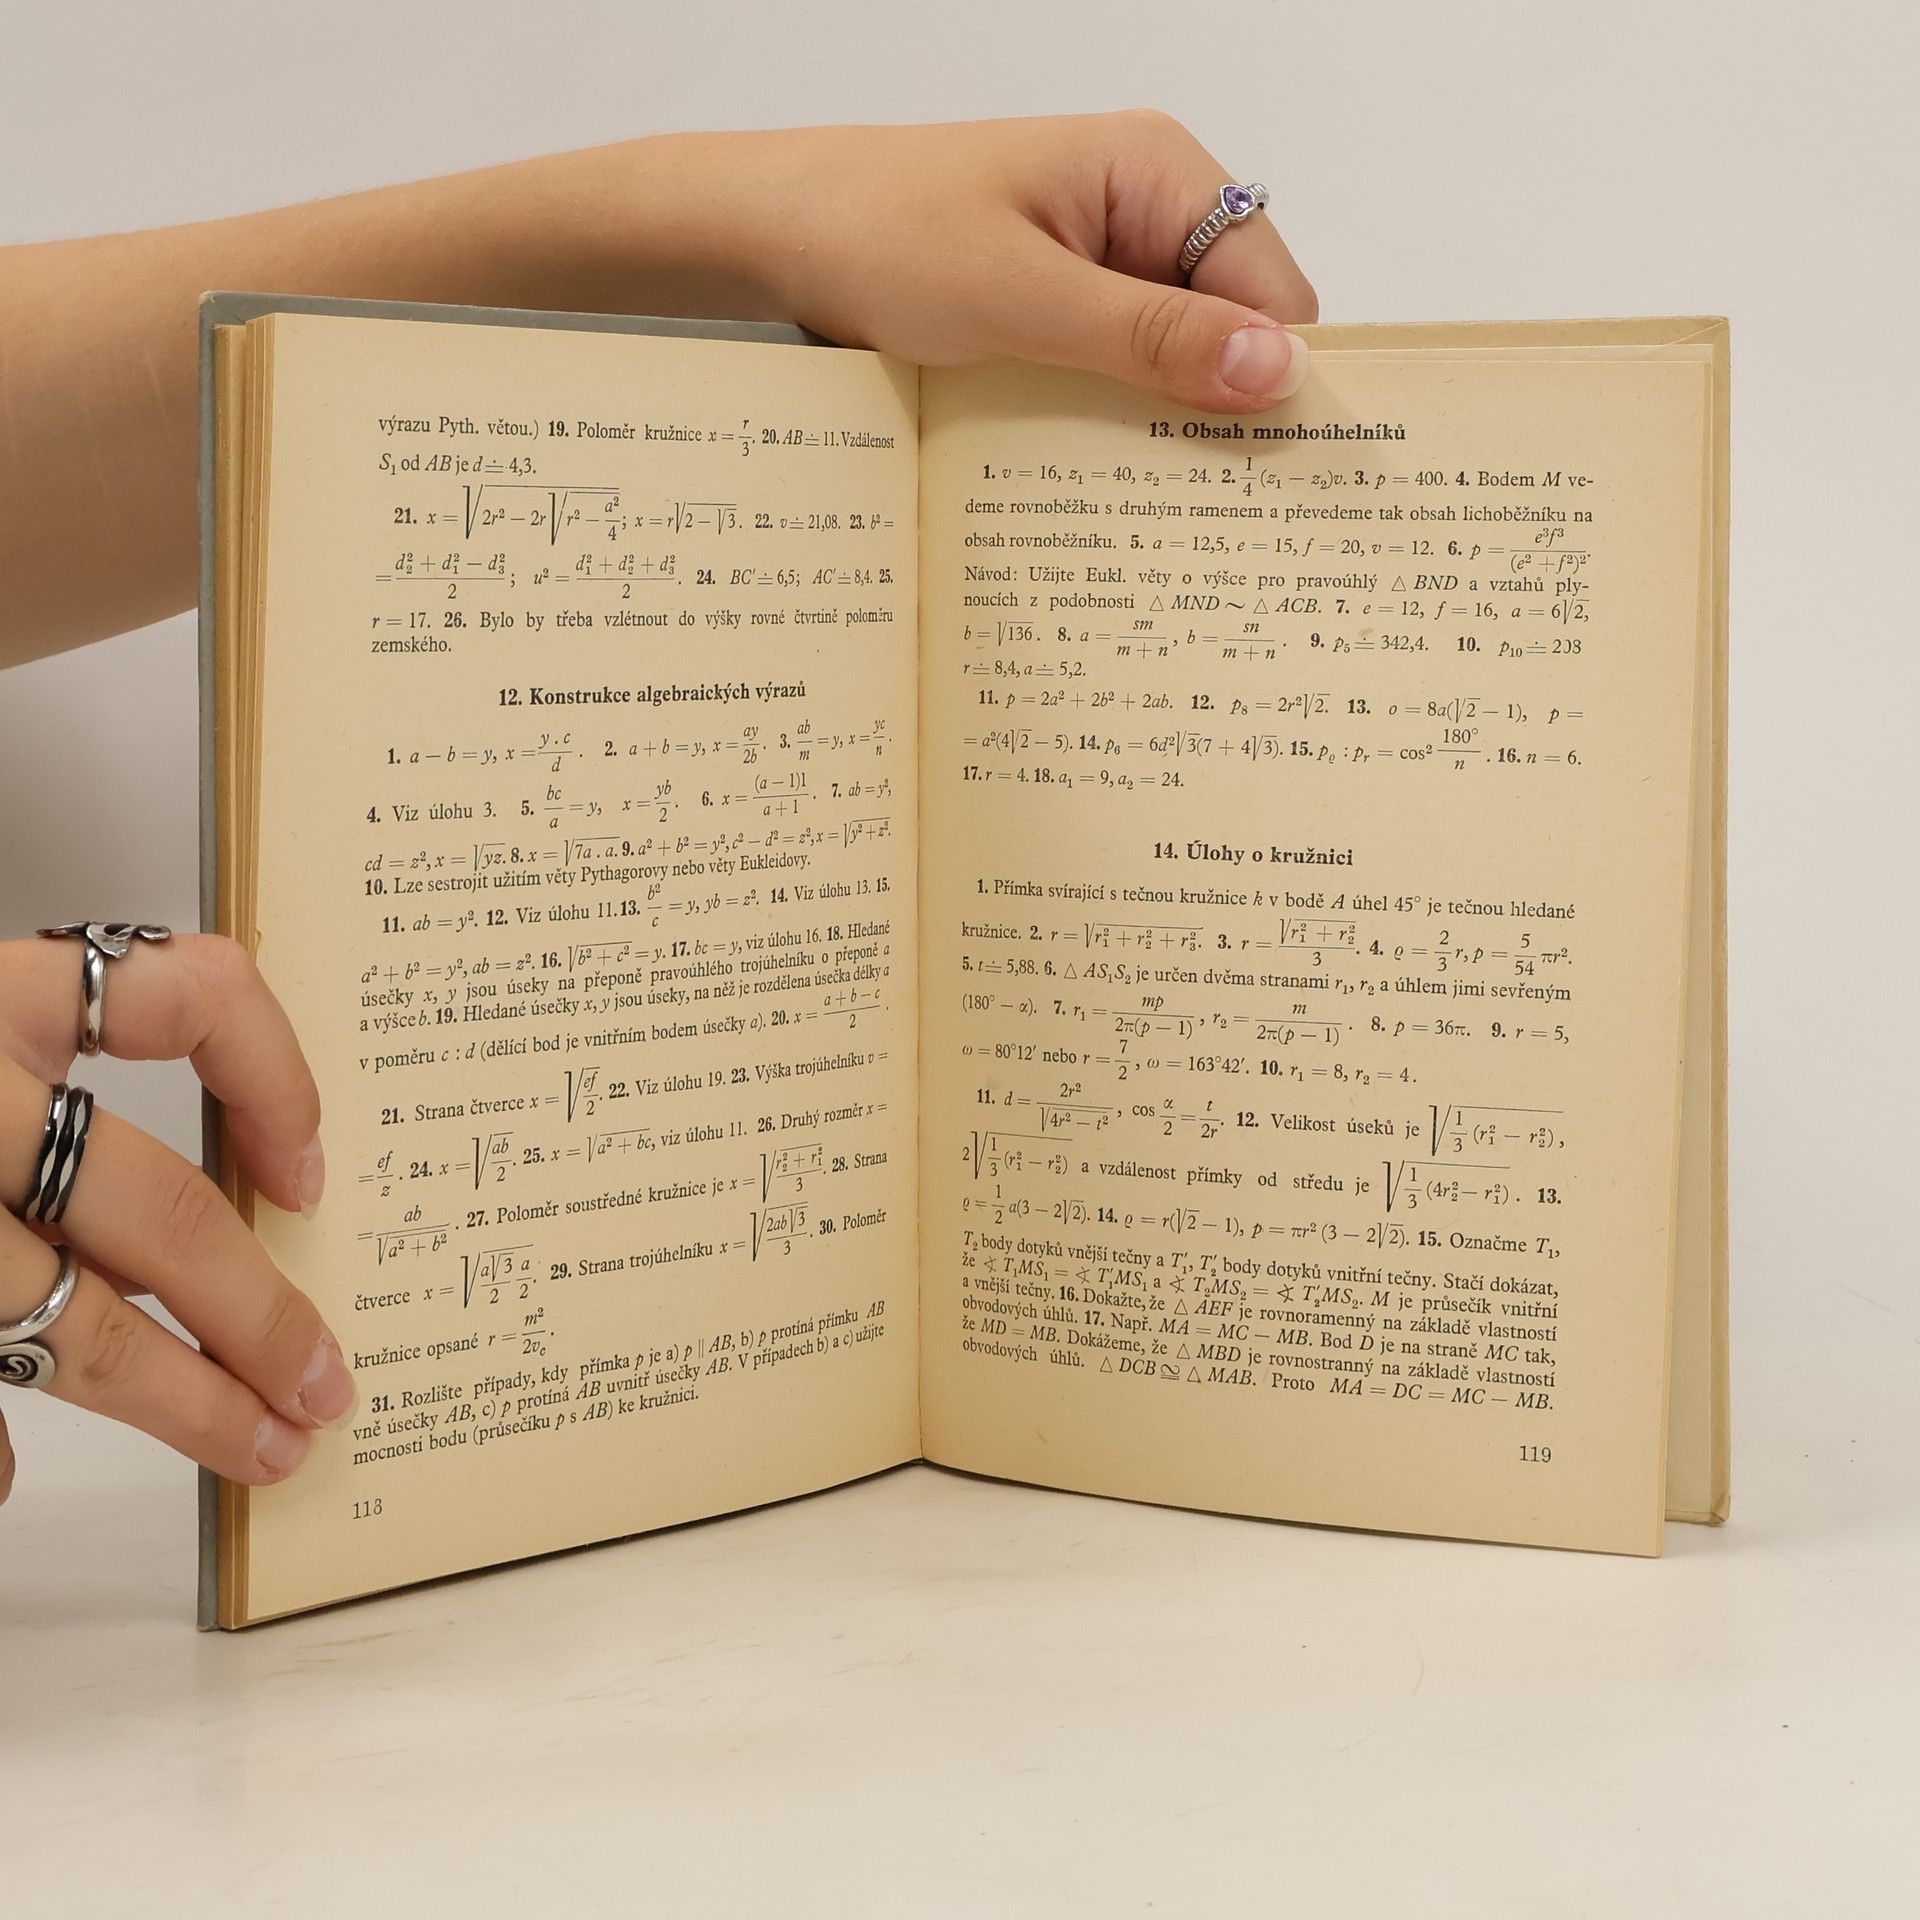 výrazu Pyth. větou.) 19. Poloměr kružnice x = r/3. 20. AB ≐ 11. Vzdálenost
S₁ od AB je d ≐ 4,3.
21. x = √(2r² − 2r√(r² − a²/4)); x = r√(2 − √3). 22. v ≐ 21,08. 23. b² =
= (d₂² + d₁² − d₃²)/2; u² = (d₁² + d₂² + d₃²)/2. 24. BC′ ≐ 6,5; AC′ ≐ 8,4. 25.
r = 17. 26. Bylo by třeba vzlétnout do výšky rovné čtvrtině poloměru
zemského.
12. Konstrukce algebraických výrazů
1. a − b = y, x = y . c/d. 2. a + b = y, x = ay/2b. 3. ab/m = y, x = yc/n.
4. Viz úlohu 3. 5. bc/a = y, x = yb/2. 6. x = (a − 1)1/(a + 1). 7. ab = y²,
cd = z², x = √yz. 8. x = √(7a . a). 9. a² + b² = y², c² − d² = z², x = √(y² + z²).
10. Lze sestrojit užitím věty Pythagorovy nebo věty Eukleidovy.
11. ab = y². 12. Viz úlohu 11. 13. b²/c = y, yb = z². 14. Viz úlohu 13. 15.
a² + b² = y², ab = z². 16. √(b² + c²) = y. 17. bc = y, viz úlohu 16. 18. Hledané
úsečky x, y jsou úseky na přeponě pravoúhlého trojúhelníku o přeponě a
a výšce b. 19. Hledané úsečky x, y jsou úseky, na něž je rozdělena úsečka délky a
v poměru c : d (dělící bod je vnitřním bodem úsečky a). 20. x = (a + b − c)/2.
21. Strana čtverce x = √(ef/2). 22. Viz úlohu 19. 23. Výška trojúhelníku v =
= ef/z. 24. x = √(ab/2). 25. x = √(a² + bc), viz úlohu 11. 26. Druhý rozměr x =
= ab/√(a² + b²). 27. Poloměr soustředné kružnice je x = √((r₂² + r₁²)/3). 28. Strana
čtverce x = √(a√3/2 a/2). 29. Strana trojúhelníku x = √(2ab√3/3). 30. Poloměr
kružnice opsané r = m²/2v꜀.
31. Rozlište případy, kdy přímka p je a) p ∥ AB, b) p protíná přímku AB
vně úsečky AB, c) p protíná AB uvnitř úsečky AB. V případech b) a c) užijte
mocnosti bodu (průsečíku p s AB) ke kružnici.
118
13. Obsah mnohoúhelníků
1. v = 16, z₁ = 40, z₂ = 24. 2. 1/4 (z₁ − z₂)v. 3. p = 400. 4. Bodem M ve-
deme rovnoběžku s druhým ramenem a převedeme tak obsah lichoběžníku na
obsah rovnoběžníku. 5. a = 12,5, e = 15, f = 20, v = 12. 6. p = e³f³/(e² + f²)².
Návod: Užijte Eukl. věty o výšce pro pravoúhlý △ BND a vztahů ply-
noucích z podobnosti △ MND ∼ △ ACB. 7. e = 12, f = 16, a = 6√2,
b = √136. 8. a = sm/(m + n), b = sn/(m + n). 9. p₅ ≐ 342,4. 10. p₁₀ ≐ 208
r ≐ 8,4, a ≐ 5,2.
11. p = 2a² + 2b² + 2ab. 12. p₈ = 2r²√2. 13. o = 8a(√2 − 1), p =
= a²(4√2 − 5). 14. p₆ = 6d²√3(7 + 4√3). 15. p_ϱ : pᵣ = cos² 180°/n. 16. n = 6.
17. r = 4. 18. a₁ = 9, a₂ = 24.
14. Úlohy o kružnici
1. Přímka svírající s tečnou kružnice k v bodě A úhel 45° je tečnou hledané
kružnice. 2. r = √(r₁² + r₂² + r₃²). 3. r = √(r₁² + r₂²)/3. 4. ϱ = 2/3 r, p = 5/54 πr².
5. t ≐ 5,88. 6. △ AS₁S₂ je určen dvěma stranami r₁, r₂ a úhlem jimi sevřeným
(180° − α). 7. r₁ = mp/2π(p − 1), r₂ = m/2π(p − 1). 8. p = 36π. 9. r = 5,
ω = 80°12′ nebo r = 7/2, ω = 163°42′. 10. r₁ = 8, r₂ = 4.
11. d = 2r²/√(4r² − t²), cos α/2 = t/2r. 12. Velikost úseků je √(1/3 (r₁² − r₂²)),
2√(1/3 (r₁² − r₂²)) a vzdálenost přímky od středu je √(1/3 (4r₂² − r₁²)). 13.
ϱ = 1/2 a(3 − 2√2). 14. ϱ = r(√2 − 1), p = πr² (3 − 2√2). 15. Označme T₁,
T₂ body dotyků vnější tečny a T₁′, T₂′ body dotyků vnitřní tečny. Stačí dokázat,
že ∢ T₁MS₁ = ∢ T₁′MS₁ a ∢ T₂MS₂ = ∢ T₂′MS₂. M je průsečík vnitřní
a vnější tečny. 16. Dokažte, že △ AEF je rovnoramenný na základě vlastností
obvodových úhlů. 17. Např. MA = MC − MB. Bod D je na straně MC tak,
že MD = MB. Dokážeme, že △ MBD je rovnostranný na základě vlastností
obvodových úhlů. △ DCB ≅ △ MAB. Proto MA = DC = MC − MB.
119